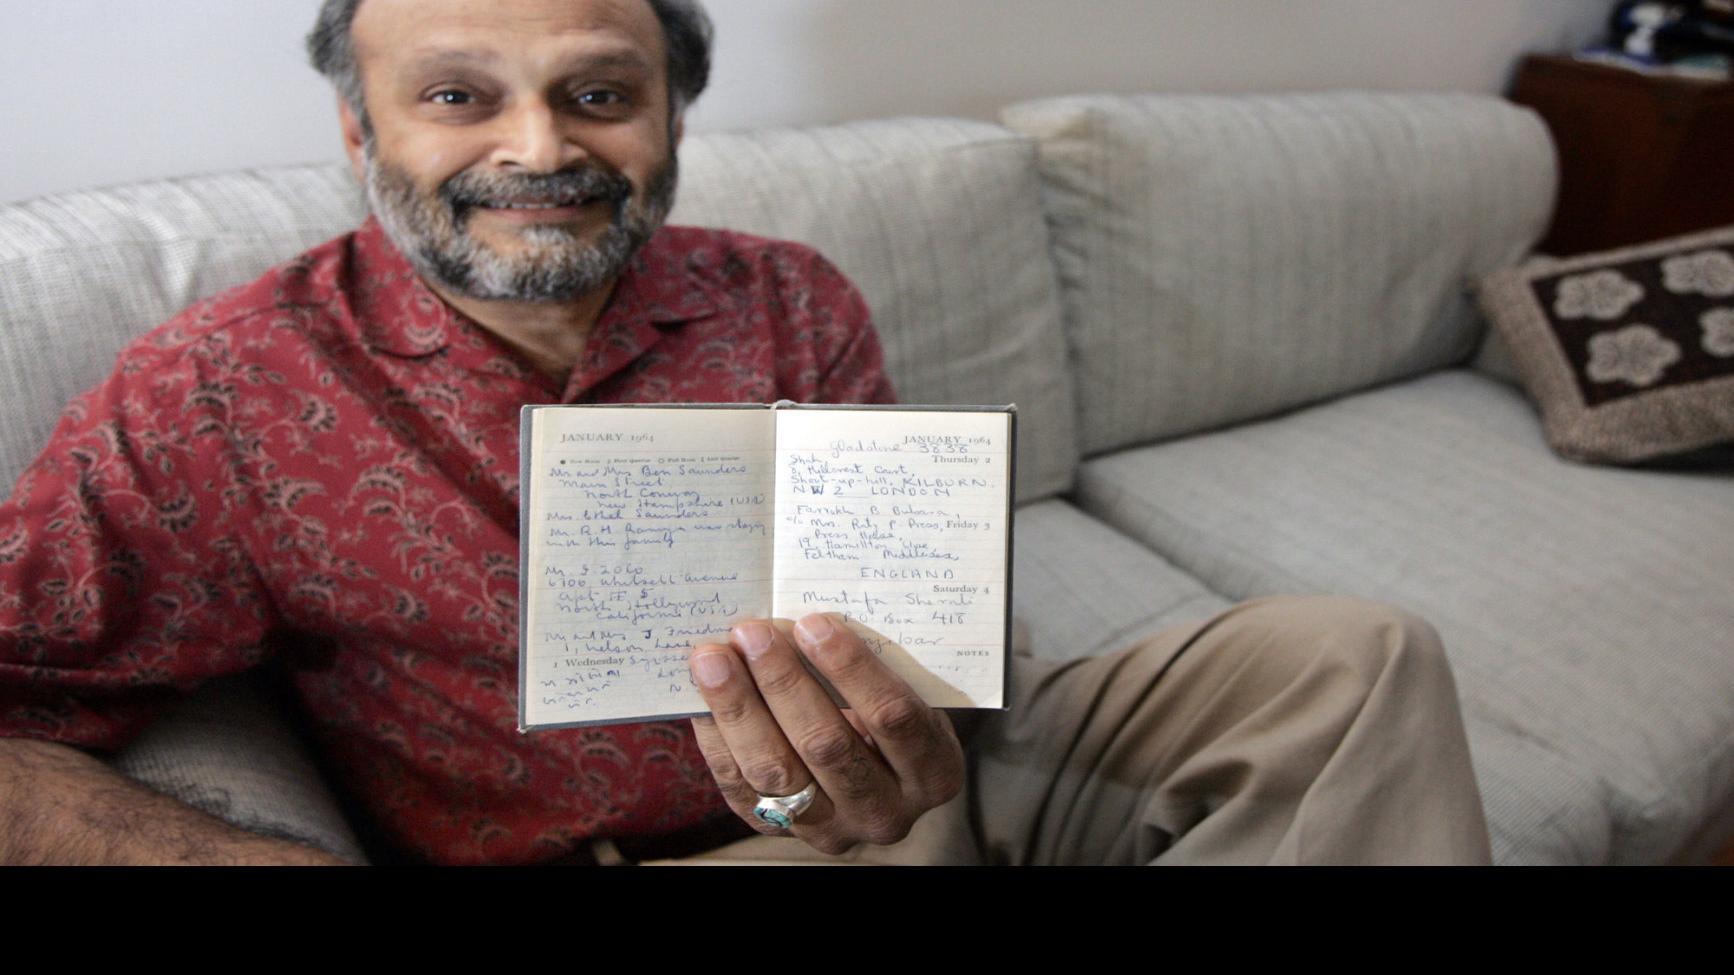 JANUARY 1964
New Moon First Quarter Full Moon Last Quarter
Mr and Mrs Ben Saunders
Main Street
North Conway
New Hampshire (USA)
Mrs. Ethel Saunders
Mr. R. H. was staying
with this family
Mr.
6706 Whitsett Avenue
Apt. 5
North Hollywood
California (USA)
Mr and Mrs J. Friedm
1, Nelson Lane,
1 Wednesday
N
JANUARY 1964
Gladstone 3838
Thursday 2
Shah,
8, Hillcrest Court,
Shoot-up-hill, KILBURN.
NW 2 LONDON
Farrokh B
c/o Mrs. Ruty P. Press, Friday 3
Press House,
19, Hamilton Close
Feltham Middlesex,
ENGLAND
Saturday 4
Mustafa Sherali
P.O. Box 418
NOTES